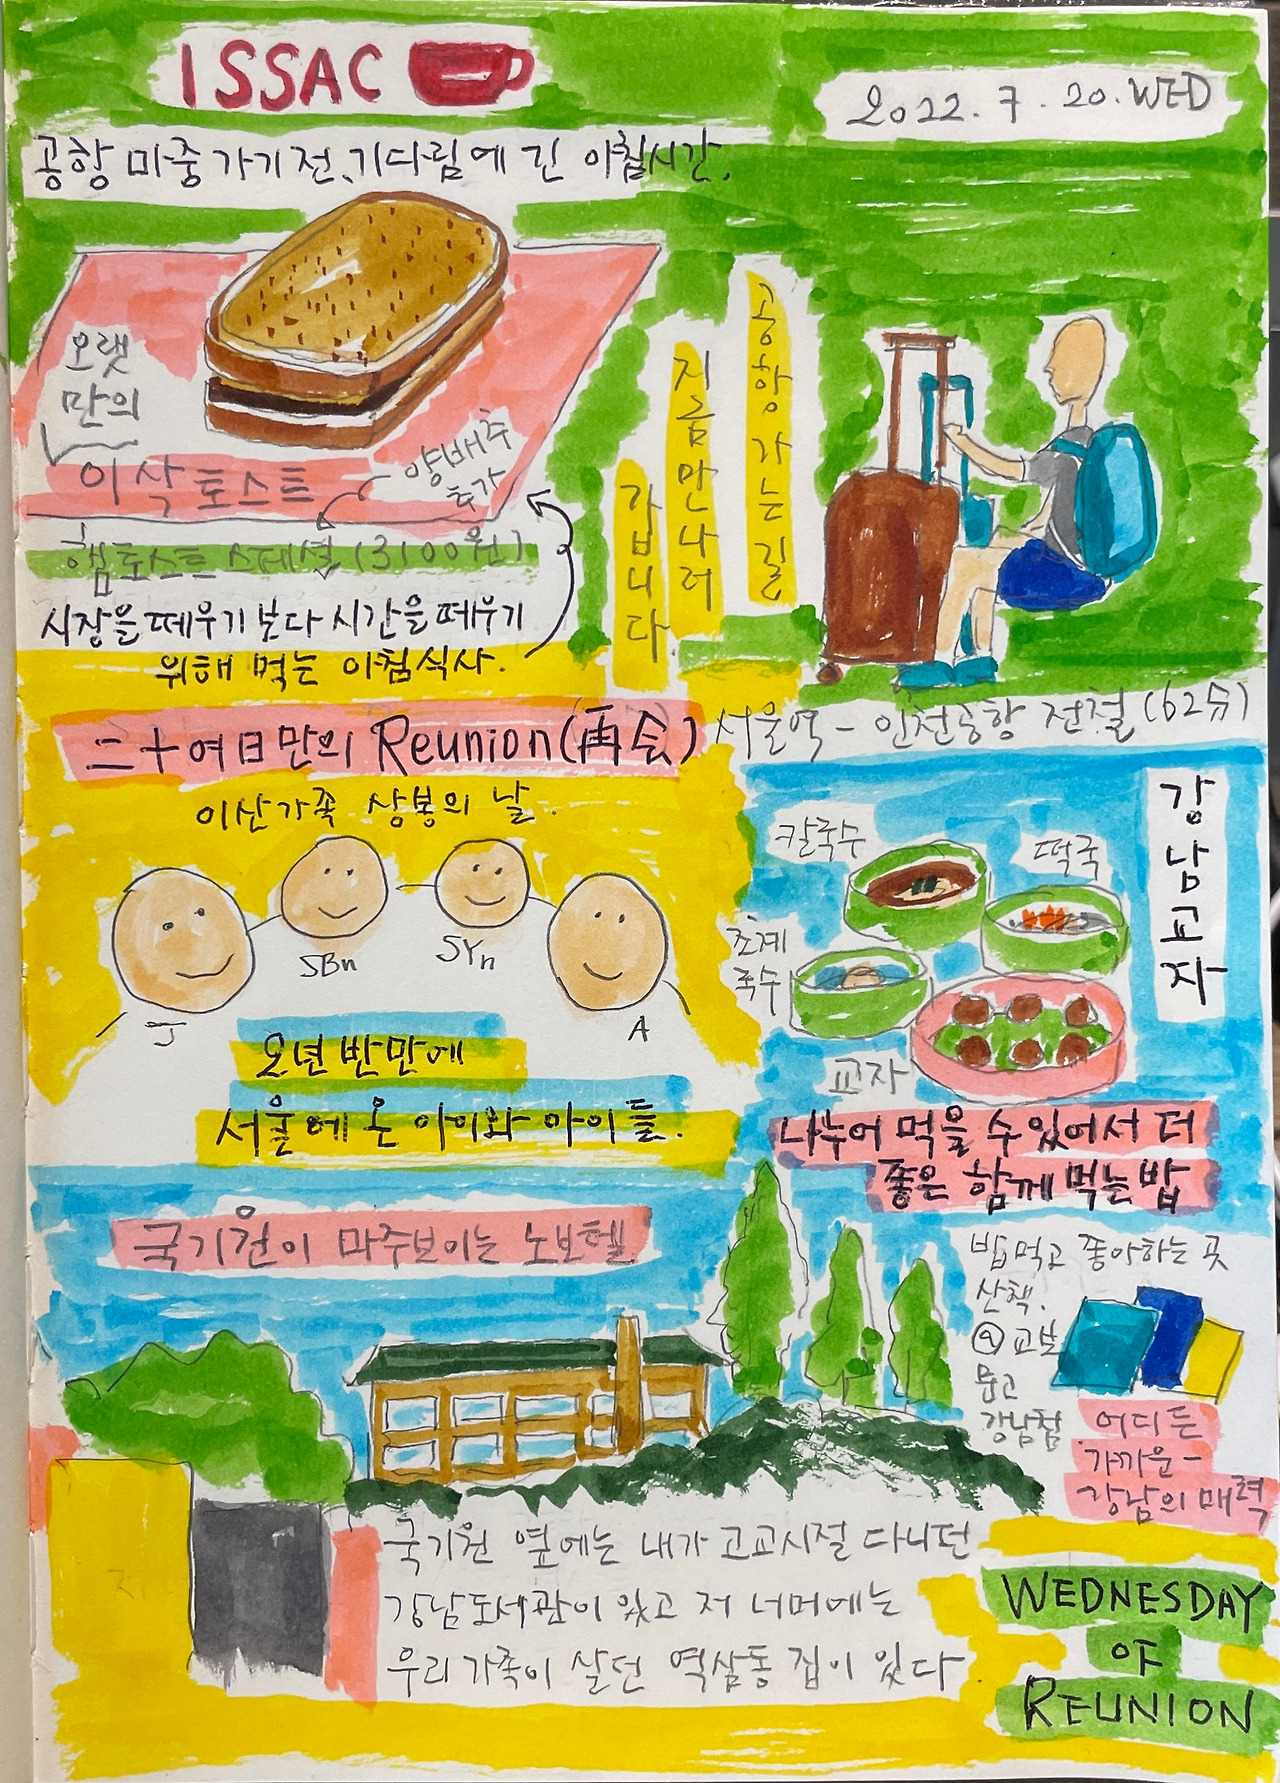 ISSAC
2022. 7. 20. WED
공항 마중 가기 전, 기다림에 긴 아침시간.
오랫
만의
이삭토스트
양배추
추가
햄토스트 스페셜 (3100원)
시장을 떼우기 보다 시간을 떼우기
위해 먹는 아침식사.
공항 가는 길
지금 만나러
갑니다
서울역 - 인천공항 전철 (62分)
二十여日만의 Reunion (再会)
이산가족 상봉의 날.
J
SBn
SYn
A
오년 반만에
서울에 온 아이와 아이들.
강남교자
칼국수
떡국
초계
국수
교자
나누어 먹을 수 있어서 더
좋은 함께 먹는 밥
국기원이 마주보이는 노보텔
밥먹고 좋아하는 곳
산책.
@ 교보
문고
강남점
어디든
가까운-
강남의 매력
국기원 옆에는 내가 고교시절 다니던
강남도서관이 있고 저 너머에는
우리 가족이 살던 역삼동 집이 있다.
WEDNESDAY
OF
REUNION